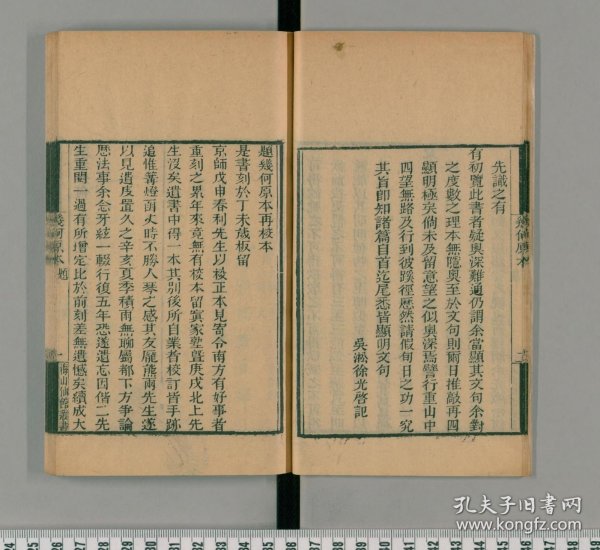 先識之有
有初覽此書者疑奧深難通仍謂余當顯其文句余對
之度數之理本無隱奧至於文句則爾日推敲再四
顯明極矣倘未及留意望之似奧深焉譬行重山中
四望無路及行到彼蹊徑歷然請假旬日之功一究
其旨即知諸篇自首迄尾悉皆顯明文句
吳淞徐光啓記
幾何原本
題幾何原本再校本
是書刻於丁未歲板留
京師戊申春利先生以校正本見寄令南方有好事者
重刻之累年來竟無有校本留寘家塾暨庚戌北上先
生沒矣遺書中得一本其別後所自業者校訂皆手跡
追惟篝燈函丈時不勝人琴之感其友龐熊兩先生遂
以見遺庋置久之辛亥夏季積雨無聊屬都下方爭論
曆法事余念牙絃一輟行復五年恐遂遺忘因偕二先
生重閱一過有所增定比於前刻差無遺憾矣續成大
幾何原本 題
一
海山仙館叢書
孔夫子旧书网
www.kongfz.com
24 25 26 27 28 29 30 31 32 33 34 35 36 37 38 39 40 41 42 43 44 45 46 47 48 49 50 51 52 53 54 55 56 57 58 59